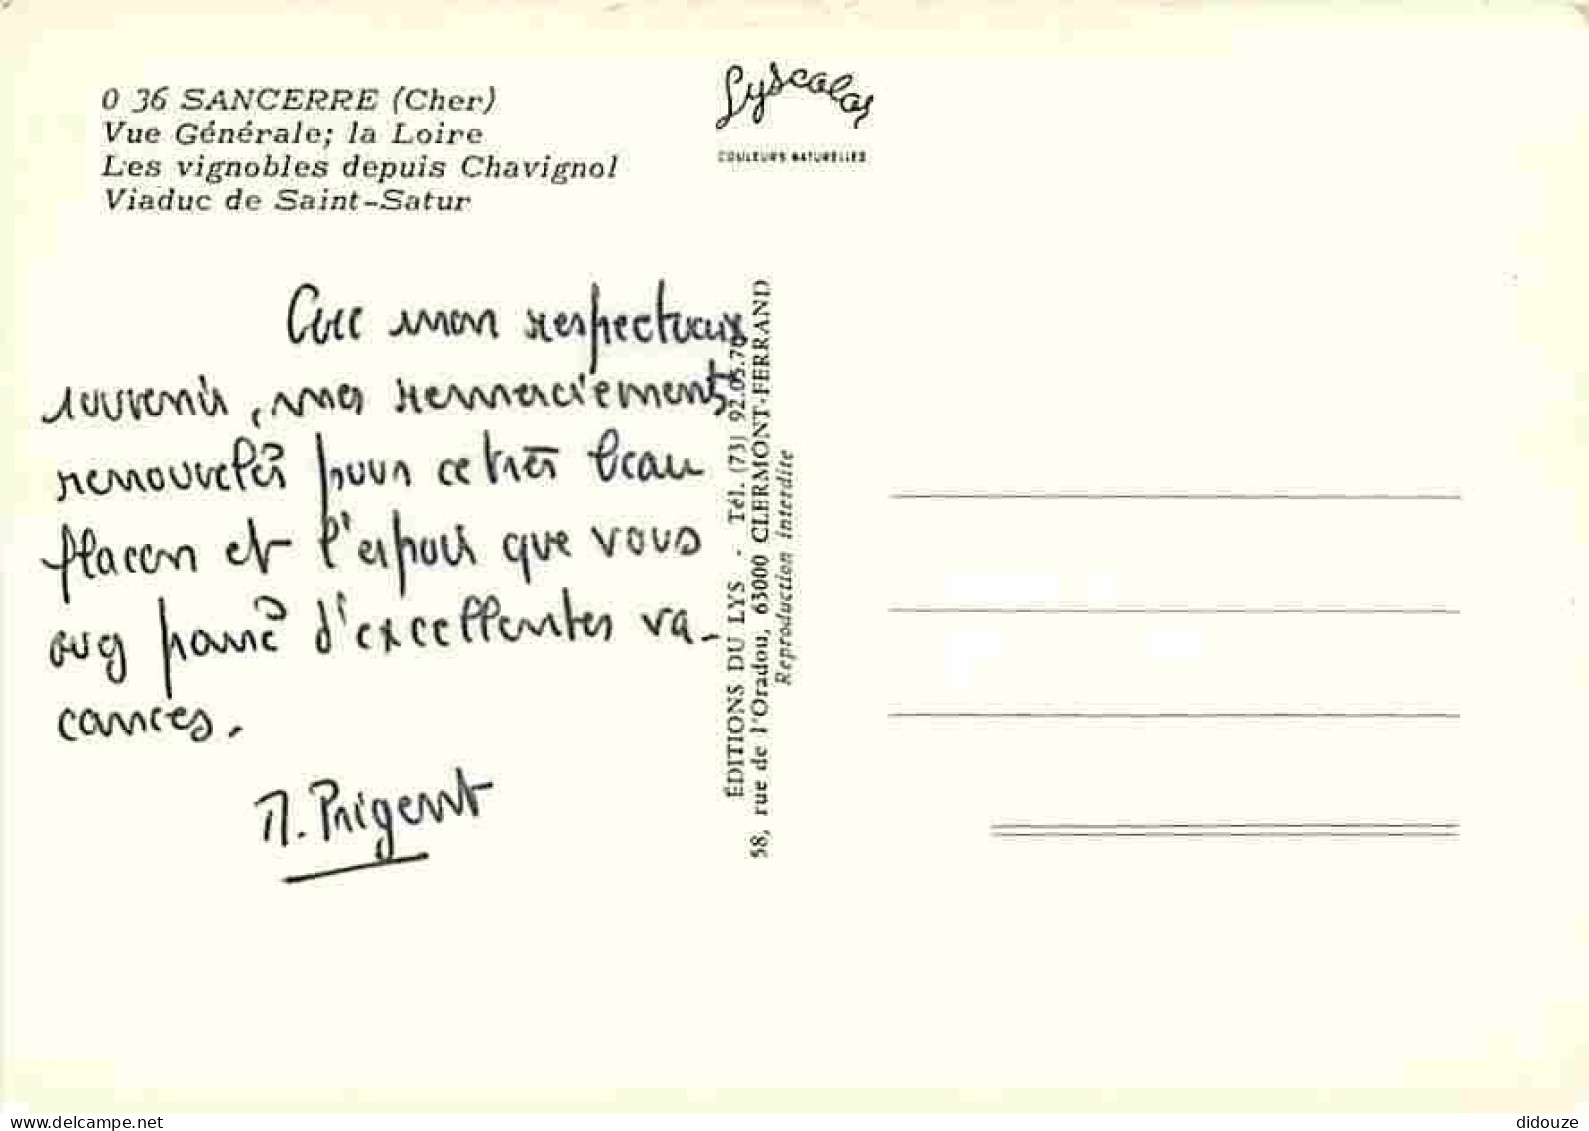 0 36 SANCERRE (Cher)
Vue Générale; la Loire
Les vignobles depuis Chavignol
Viaduc de Saint-Satur
Lyscolor
COULEURS NATURELLES
Avec mon respectueux
souvenir, mes remerciements
renouvelés pour ce très beau
flacon et l'espoir que vous
avez passé d'excellentes va-
cances.
Prigent
ÉDITIONS DU LYS - Tél. (73) 92.05.70
58, rue de l'Oradou, 63000 CLERMONT-FERRAND
Reproduction interdite
delcampe.net
didouze